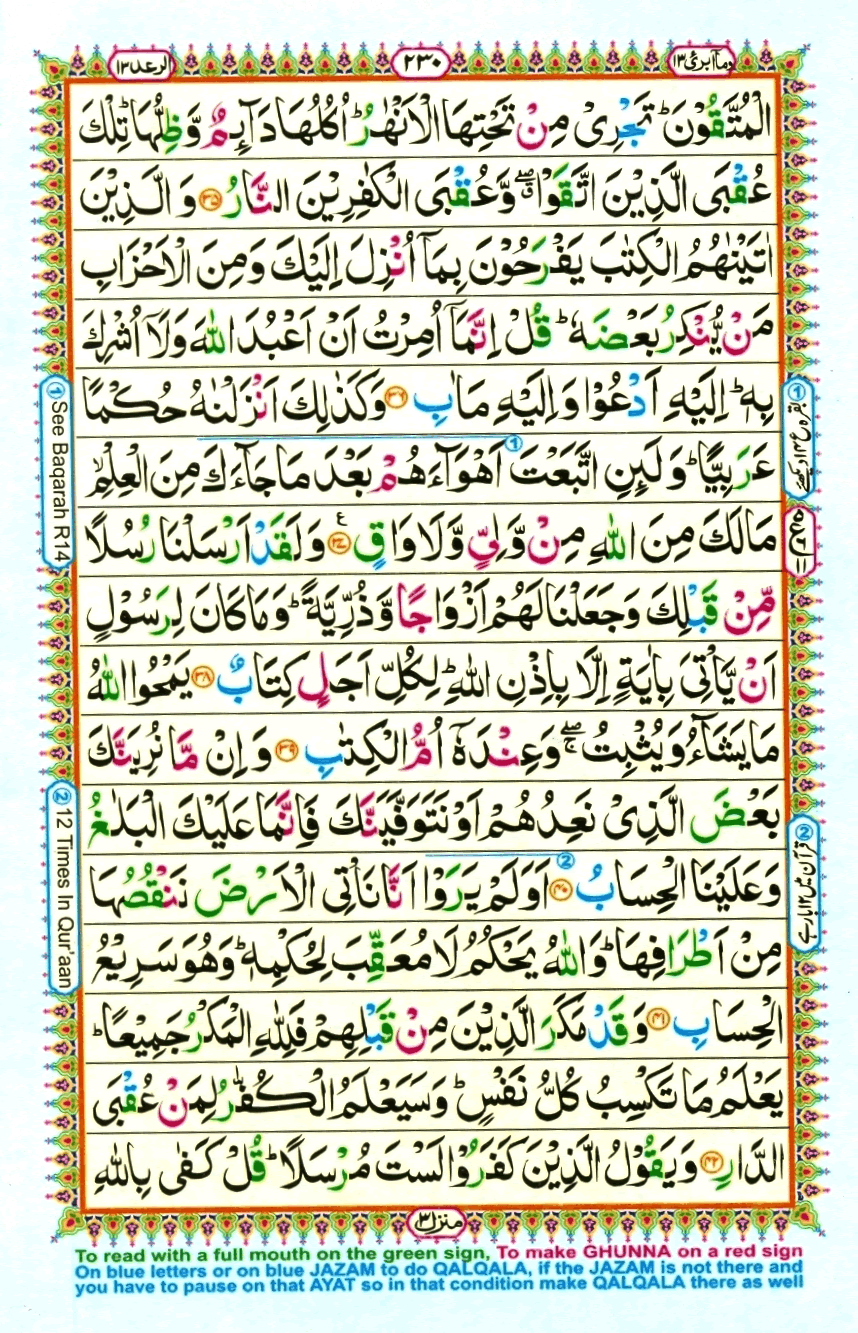 الرعد ۱۳
۲۳۰
وما ابرئ ۱۳
الْمُتَّقُوْنَ ؕ تَجْرِیْ مِنْ تَحْتِهَا الْاَنْهٰرُ ؕ اُكُلُهَا دَآىِٕمٌ وَّظِلُّهَا ؕ تِلْكَ
عُقْبَی الَّذِیْنَ اتَّقَوْا ۖۗ وَّعُقْبَی الْكٰفِرِیْنَ النَّارُ ۳۵ وَالَّذِیْنَ
اٰتَیْنٰهُمُ الْكِتٰبَ یَفْرَحُوْنَ بِمَاۤ اُنْزِلَ اِلَیْكَ وَمِنَ الْاَحْزَابِ
مَنْ یُّنْكِرُ بَعْضَهٗ ؕ قُلْ اِنَّمَاۤ اُمِرْتُ اَنْ اَعْبُدَ اللّٰهَ وَلَاۤ اُشْرِكَ
بِهٖ ؕ اِلَیْهِ اَدْعُوْا وَاِلَیْهِ مَاٰبِ ۳۶ وَكَذٰلِكَ اَنْزَلْنٰهُ حُكْمًا
عَرَبِیًّا ؕ وَلَىِٕنِ اتَّبَعْتَ ① اَهْوَآءَهُمْ بَعْدَ مَا جَآءَكَ مِنَ الْعِلْمِ ۙ
مَا لَكَ مِنَ اللّٰهِ مِنْ وَّلِیٍّ وَّلَا وَاقٍ ۳۷ ع وَلَقَدْ اَرْسَلْنَا رُسُلًا
مِّنْ قَبْلِكَ وَجَعَلْنَا لَهُمْ اَزْوَاجًا وَّذُرِّیَّةً ؕ وَمَا كَانَ لِرَسُوْلٍ
اَنْ یَّاْتِیَ بِاٰیَةٍ اِلَّا بِاِذْنِ اللّٰهِ ؕ لِكُلِّ اَجَلٍ كِتَابٌ ۳۸ یَمْحُوا اللّٰهُ
مَا یَشَآءُ وَیُثْبِتُ ۖۚ وَعِنْدَهٗۤ اُمُّ الْكِتٰبِ ۳۹ وَاِنْ مَّا نُرِیَنَّكَ
بَعْضَ الَّذِیْ نَعِدُهُمْ اَوْ نَتَوَفَّیَنَّكَ فَاِنَّمَا عَلَیْكَ الْبَلٰغُ
وَعَلَیْنَا الْحِسَابُ ۴۰ ② اَوَلَمْ یَرَوْا اَنَّا نَاْتِی الْاَرْضَ نَنْقُصُهَا
مِنْ اَطْرَافِهَا ؕ وَاللّٰهُ یَحْكُمُ لَا مُعَقِّبَ لِحُكْمِهٖ ؕ وَهُوَ سَرِیْعُ
الْحِسَابِ ۴۱ وَقَدْ مَكَرَ الَّذِیْنَ مِنْ قَبْلِهِمْ فَلِلّٰهِ الْمَكْرُ جَمِیْعًا ؕ
یَعْلَمُ مَا تَكْسِبُ كُلُّ نَفْسٍ ؕ وَسَیَعْلَمُ الْكُفّٰرُ لِمَنْ عُقْبَی
الدَّارِ ۴۲ وَیَقُوْلُ الَّذِیْنَ كَفَرُوْا لَسْتَ مُرْسَلًا ؕ قُلْ كَفٰی بِاللّٰهِ
① See Baqarah R14
② 12 Times In Qur'aan
② قرآن میں ۱۲ بار ہے
منزل ۳
To read with a full mouth on the green sign, To make GHUNNA on a red sign
On blue letters or on blue JAZAM to do QALQALA, if the JAZAM is not there and
you have to pause on that AYAT so in that condition make QALQALA there as well